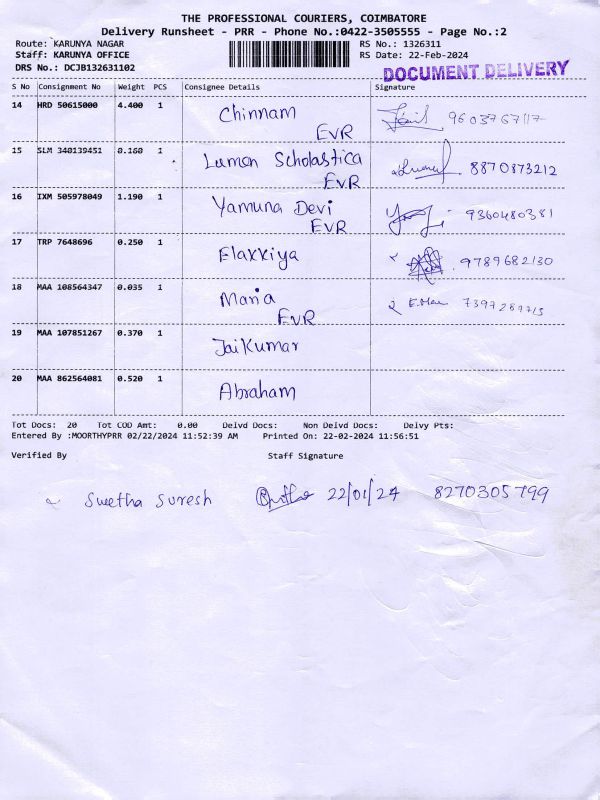 THE PROFESSIONAL COURIERS, COIMBATORE
Delivery Runsheet - PRR - Phone No.:0422-3505555 - Page No.:2
Route: KARUNYA NAGAR RS No.: 1326311
Staff: KARUNYA OFFICE RS Date: 22-Feb-2024
DRS No.: DCJB132631102 DOCUMENT DELIVERY
S No Consignment No Weight PCS Consignee Details Signature
14 HRD 50615000 4.400 1 Chinnam 9603767117
EVR
15 SLM 340139451 0.160 1 Lumen Scholastica 8870873212
EVR
16 IXM 505978049 1.190 1 Yamuna Devi 9360480381
EVR
17 TRP 7648696 0.250 1 Elakkiya 9789682130
18 MAA 108564347 0.035 1 Maria 7397289713
EVR
19 MAA 107851267 0.370 1 Jaikumar
20 MAA 862564081 0.520 1 Abraham
Tot Docs: 20 Tot COD Amt: 0.00 Delvd Docs: Non Delvd Docs: Delvy Pts:
Entered By :MOORTHYPRR 02/22/2024 11:52:39 AM Printed On: 22-02-2024 11:56:51
Verified By Staff Signature
Swetha Suresh 22/01/24 8270305799